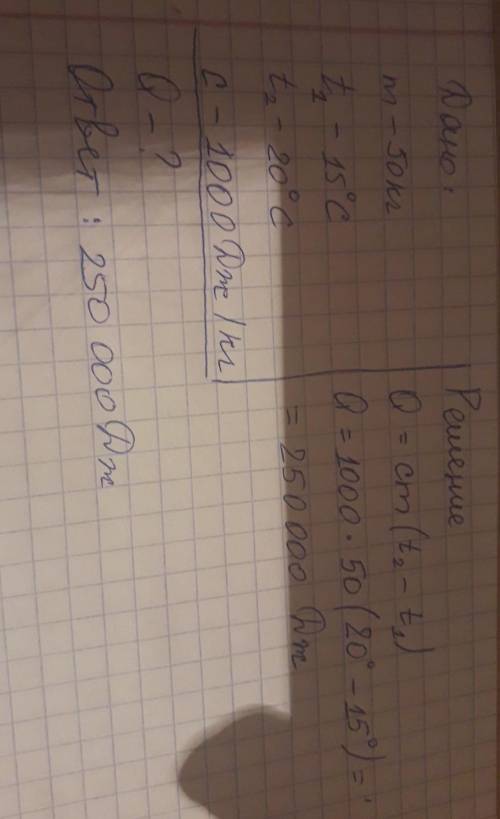 Дано:
m - 50 кг
t₁ - 15°C
t₂ - 20°C
c - 1000 Дж/кг
Q - ?
Решение
Q = cm(t₂ - t₁)
Q = 1000 · 50 (20° - 15°) =
= 250 000 Дж
Ответ: 250 000 Дж